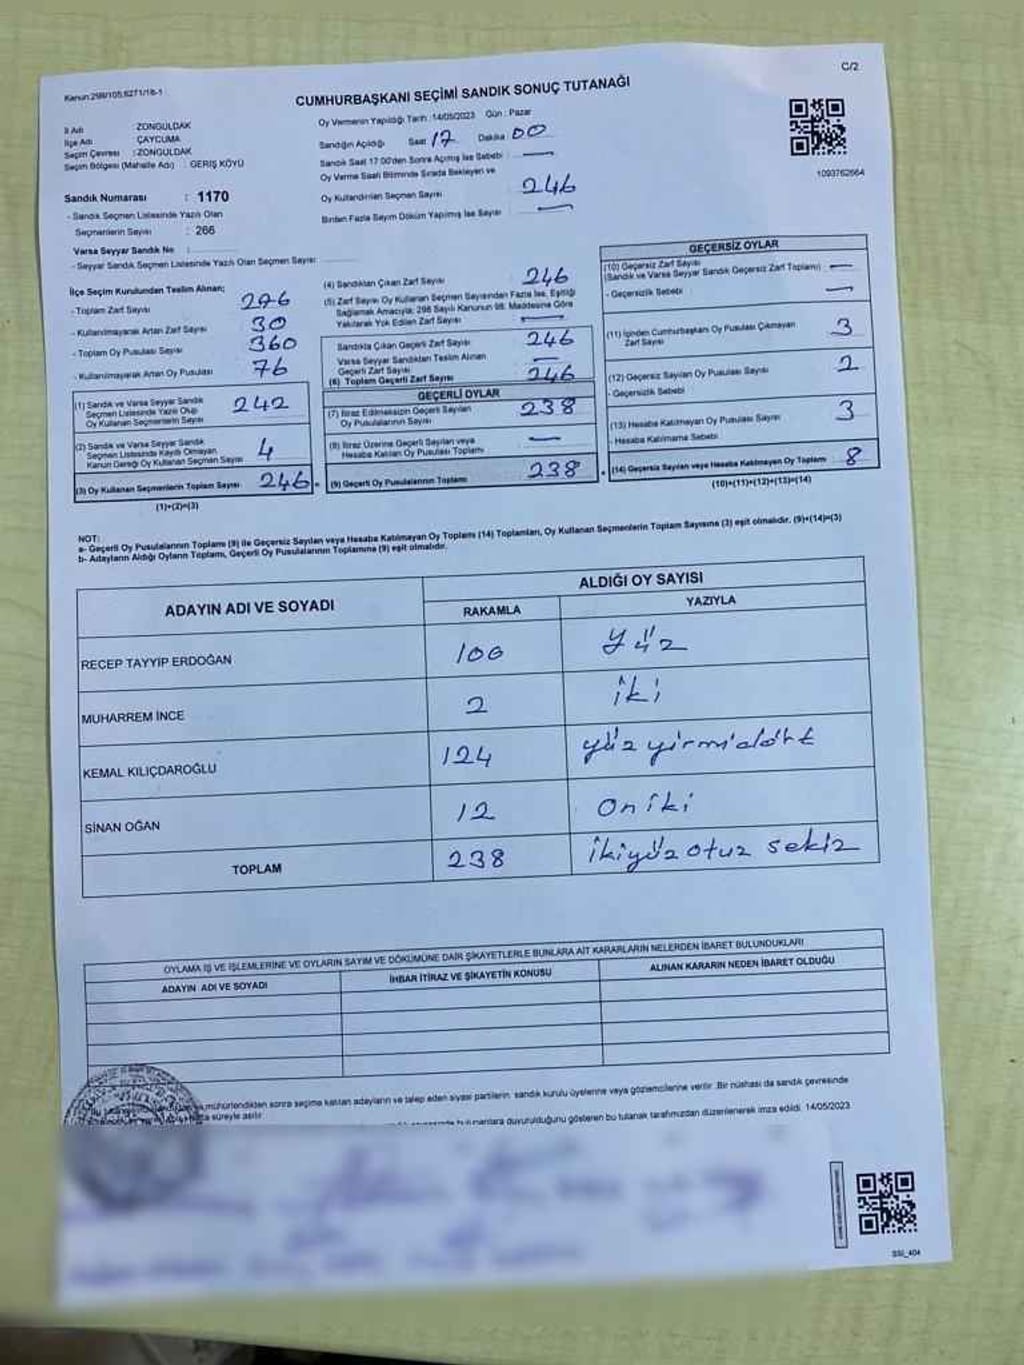 Kanun:298/105,6271/16-1
C/2
CUMHURBAŞKANI SEÇİMİ SANDIK SONUÇ TUTANAĞI
İl Adı : ZONGULDAK
İlçe Adı : ÇAYCUMA
Seçim Çevresi : ZONGULDAK
Seçim Bölgesi (Mahalle Adı) : GERİŞ KÖYÜ
Sandık Numarası : 1170
- Sandık Seçmen Listesinde Yazılı Olan
Seçmenlerin Sayısı : 266
Varsa Seyyar Sandık No :
- Seyyar Sandık Seçmen Listesinde Yazılı Olan Seçmen Sayısı :
Oy Vermenin Yapıldığı Tarih : 14/05/2023 Gün : Pazar
Sandığın Açıldığı Saat 17 Dakika 00
Sandık Saat 17:00'den Sonra Açılmış İse Sebebi : —
Oy Verme Saati Bitiminde Sırada Bekleyen ve
Oy Kullandırılan Seçmen Sayısı 246
Birden Fazla Sayım Döküm Yapılmış İse Sayısı : —
1093762664
İlçe Seçim Kurulundan Teslim Alınan;
- Toplam Zarf Sayısı 276
- Kullanılmayarak Artan Zarf Sayısı 30
- Toplam Oy Pusulası Sayısı 360
- Kullanılmayarak Artan Oy Pusulası 76
(1) Sandık ve Varsa Seyyar Sandık
Seçmen Listesinde Yazılı Olup
Oy Kullanan Seçmenlerin Sayısı 242
(2) Sandık ve Varsa Seyyar Sandık
Seçmen Listesinde Kayıtlı Olmayan
Kanun Gereği Oy Kullanan Seçmen Sayısı 4
(3) Oy Kullanan Seçmenlerin Toplam Sayısı 246
(1)+(2)=(3)
(4) Sandıktan Çıkan Zarf Sayısı 246
(5) Zarf Sayısı Oy Kullanan Seçmen Sayısından Fazla İse, Eşitliği
Sağlamak Amacıyla; 298 Sayılı Kanunun 98. Maddesine Göre
Yakılarak Yok Edilen Zarf Sayısı —
Sandıkta Çıkan Geçerli Zarf Sayısı 246
Varsa Seyyar Sandıktan Teslim Alınan
Geçerli Zarf Sayısı —
(6) Toplam Geçerli Zarf Sayısı 246
GEÇERLİ OYLAR
(7) İtiraz Edilmeksizin Geçerli Sayılan
Oy Pusulalarının Sayısı 238
(8) İtiraz Üzerine Geçerli Sayılan veya
Hesaba Katılan Oy Pusulası Toplamı —
(9) Geçerli Oy Pusulalarının Toplamı 238
GEÇERSİZ OYLAR
(10) Geçersiz Zarf Sayısı
(Sandık ve Varsa Seyyar Sandık Geçersiz Zarf Toplamı) —
- Geçersizlik Sebebi —
(11) İçinden Cumhurbaşkanı Oy Pusulası Çıkmayan
Zarf Sayısı 3
(12) Geçersiz Sayılan Oy Pusulası Sayısı 2
- Geçersizlik Sebebi
(13) Hesaba Katılmayan Oy Pusulası Sayısı 3
- Hesaba Katılmama Sebebi
(14) Geçersiz Sayılan veya Hesaba Katılmayan Oy Toplamı 8
(10)+(11)+(12)+(13)=(14)
NOT:
a- Geçerli Oy Pusulalarının Toplamı (9) ile Geçersiz Sayılan veya Hesaba Katılmayan Oy Toplamı (14) Toplamları, Oy Kullanan Seçmenlerin Toplam Sayısına (3) eşit olmalıdır. (9)+(14)=(3)
b- Adayların Aldığı Oyların Toplamı, Geçerli Oy Pusulalarının Toplamına (9) eşit olmalıdır.
ADAYIN ADI VE SOYADI ALDIĞI OY SAYISI
RAKAMLA YAZIYLA
RECEP TAYYİP ERDOĞAN 100 yüz
MUHARREM İNCE 2 iki
KEMAL KILIÇDAROĞLU 124 yüz yirmidört
SİNAN OĞAN 12 oniki
TOPLAM 238 ikiyüz otuz sekiz
OYLAMA İŞ VE İŞLEMLERİNE VE OYLARIN SAYIM VE DÖKÜMÜNE DAİR ŞİKAYETLERLE BUNLARA AİT KARARLARIN NELERDEN İBARET BULUNDUKLARI
ADAYIN ADI VE SOYADI İHBAR İTİRAZ VE ŞİKAYETİN KONUSU ALINAN KARARIN NEDEN İBARET OLDUĞU
mühürlendikten sonra seçime katılan adayların ve talep eden siyasi partilerin sandık kurulu üyelerine veya gözlemcilerine verilir. Bir nüshası da sandık çevresinde
süreyle asılır.
bulunanlara duyurulduğunu gösteren bu tutanak tarafımızdan düzenlenerek imza edildi. 14/05/2023
SSI_404